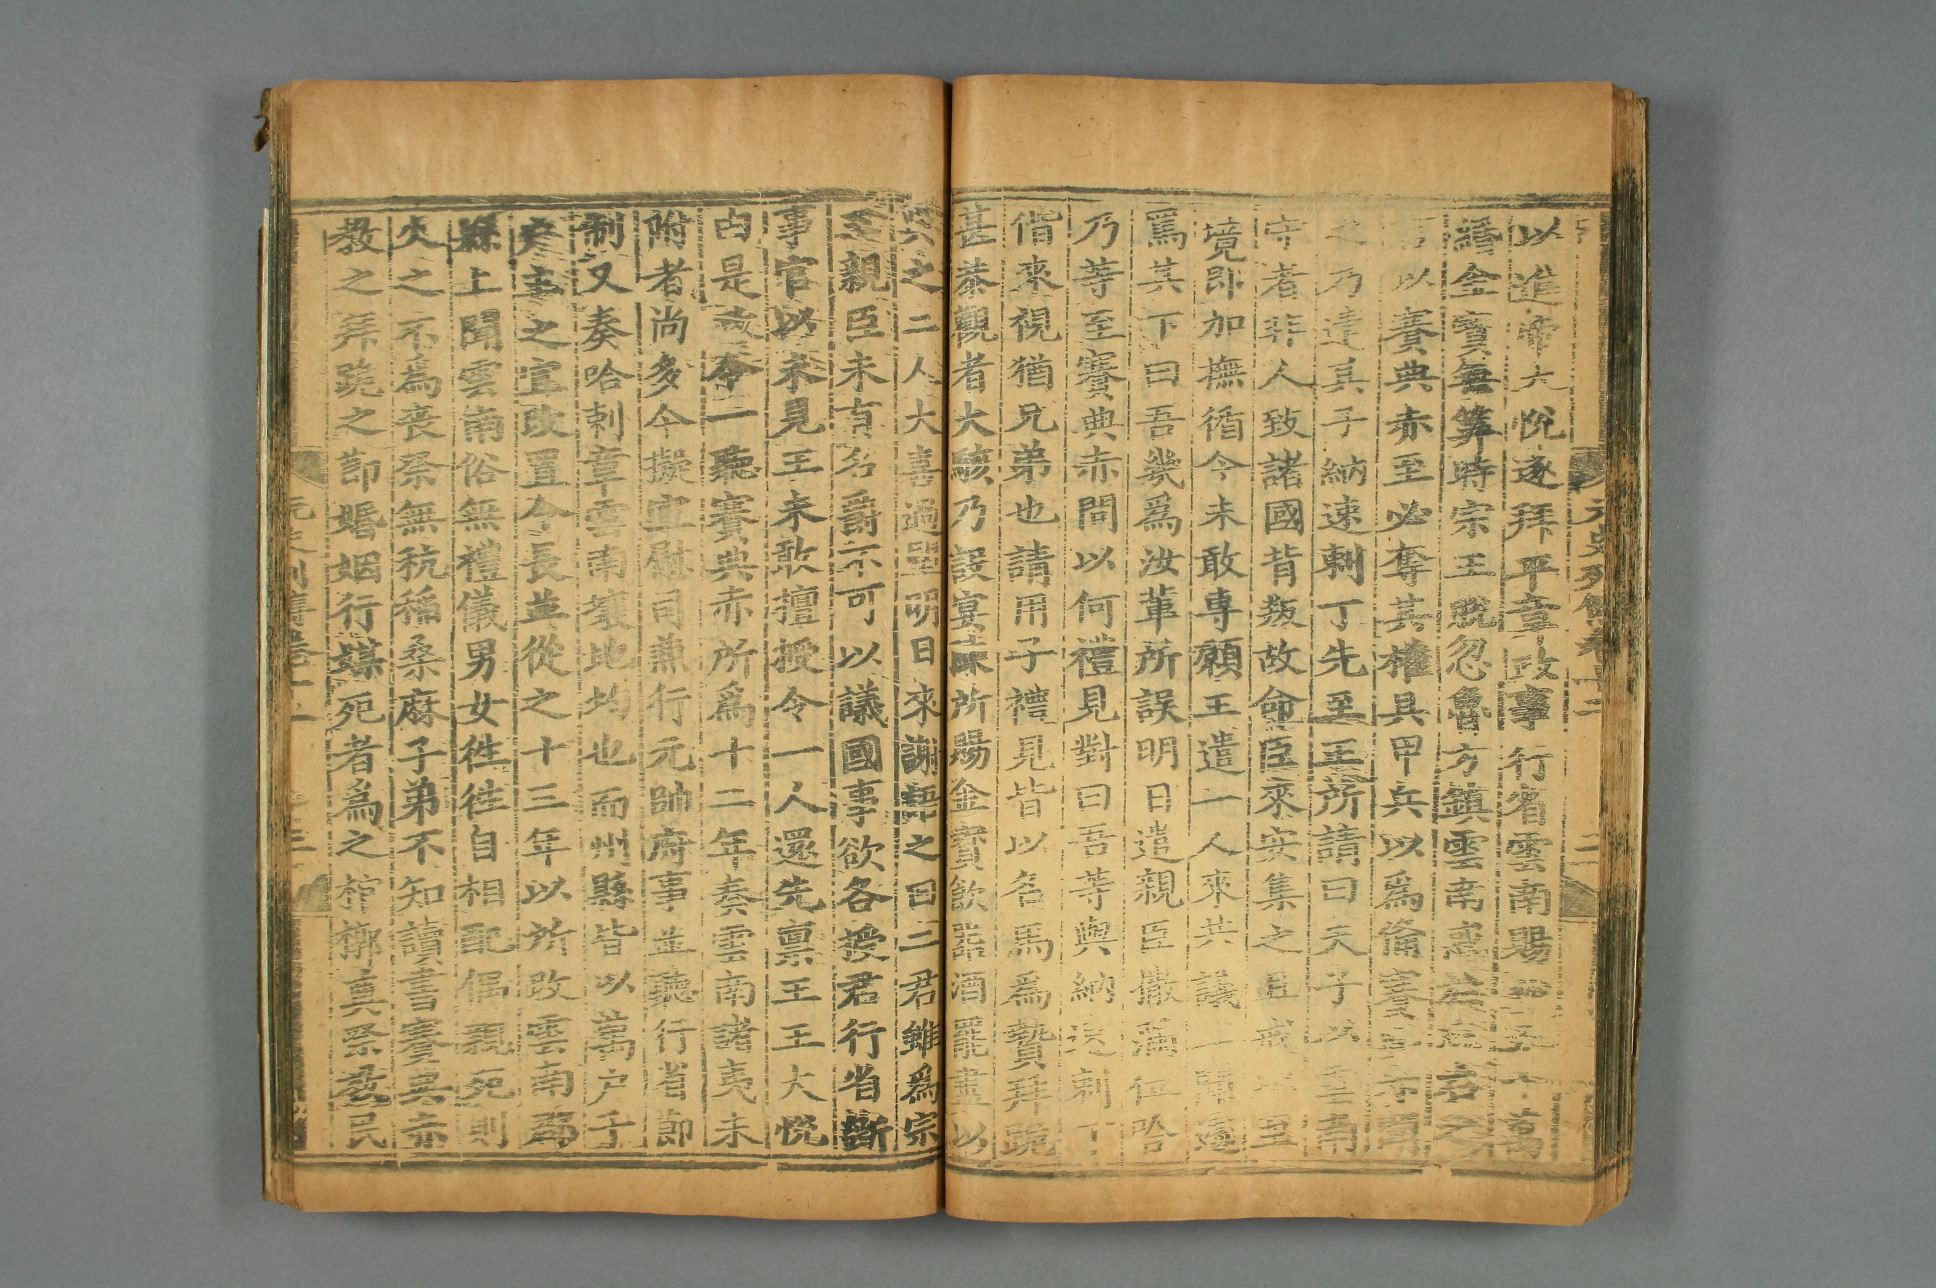 元史列傳卷十二 二
以進帝大悅遂拜平章政事行省雲南賜 五十萬
緡金寶無筭時宗王脫忽魯方鎮雲南惑於 言以
 以賽典赤至必奪其權具甲兵以爲備賽典赤聞
之乃遣其子納速剌丁先至王所請曰天子以雲南
守者非人致諸國背叛故命臣來安集之且戒以至
境卽加撫循今未敢專願王遣一人來共議 聞遽
罵其下曰吾幾爲汝輩所誤明日遣親臣撒滿位哈
乃等至賽典赤問以何禮見對曰吾等與納速剌丁
偕來視猶兄弟也請用子禮見皆以名馬爲贄拜跪
甚恭觀者大駭乃設宴陳所賜金寶飲器酒罷盡以
與之二人大喜過望明日來謝語之曰二君雖爲宗
王親臣未有名爵不可以議國事欲各授君行省斷
事官以未見王未敢擅授令一人還先稟王王大悅
由是政令一聽賽典赤所爲十二年奏雲南諸夷未
附者尚多今擬宣慰司兼行元帥府事並聽行省節
制又奏哈剌章雲南壤地均也而州縣皆以萬户千
户主之宜改置令長並從之十三年以所改雲南郡
縣上聞雲南俗無禮儀男女徃徃自相配偶親死則
火之不爲喪祭無秔稻桑麻子弟不知讀書賽典赤
教之拜跪之節婚姻行媒死者爲之棺槨奠祭教民
元史列傳卷十二 三